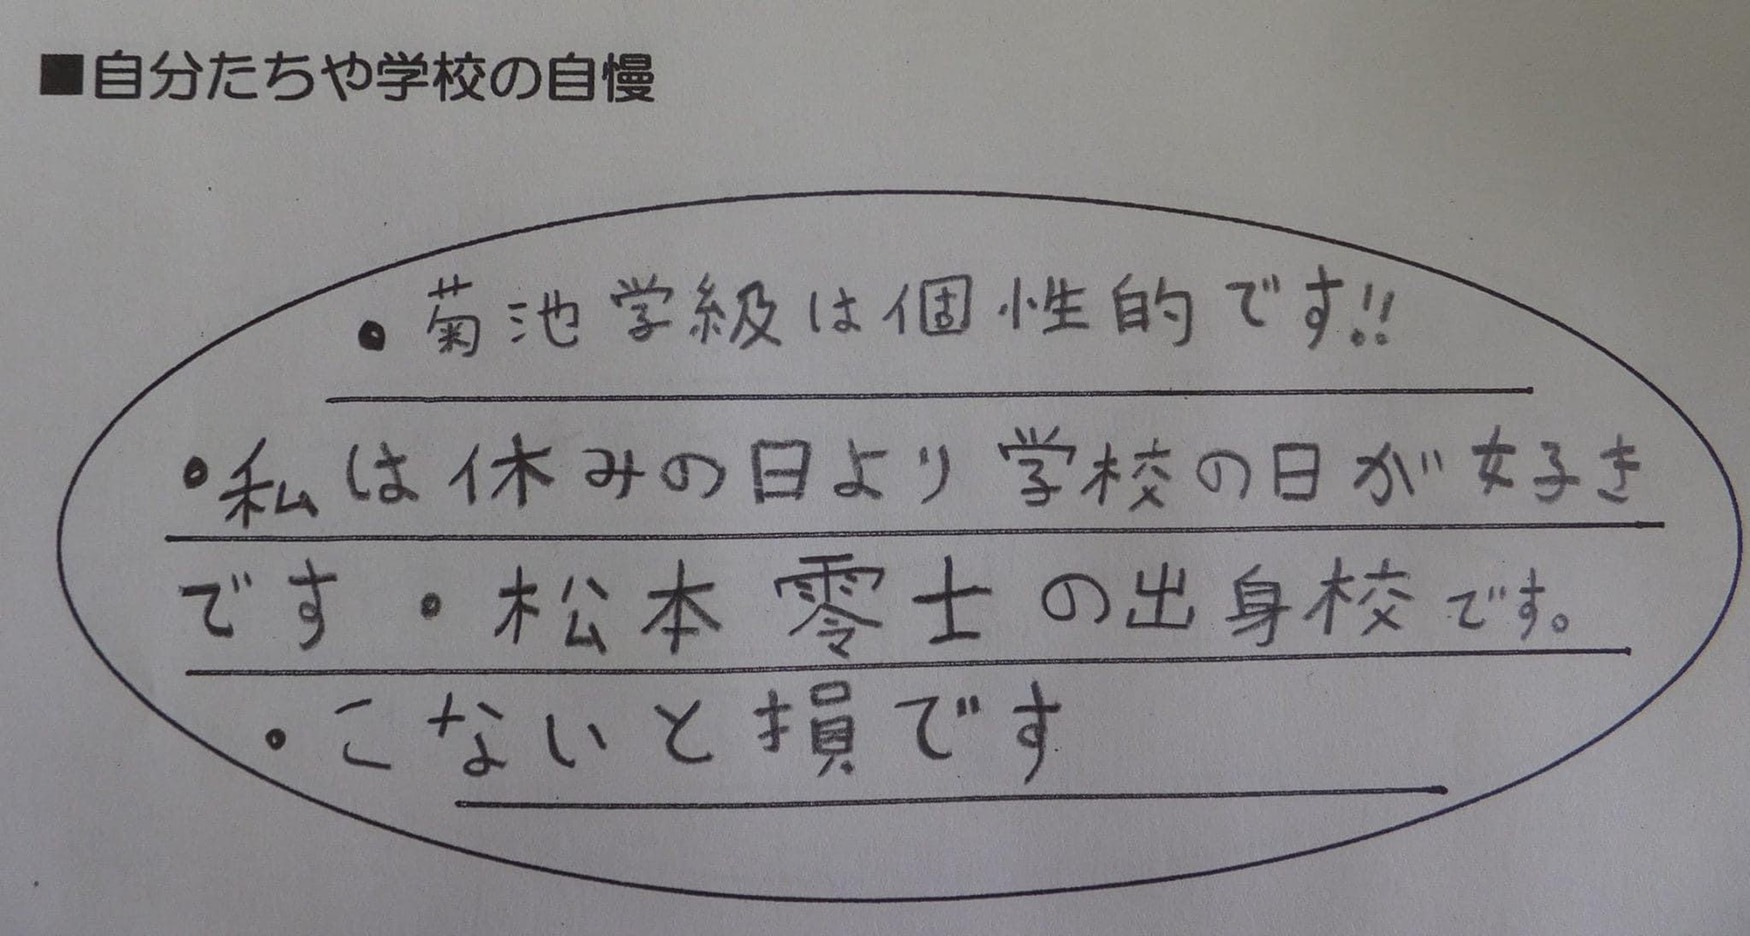 ■自分たちや学校の自慢
・菊池学級は個性的です!!
・私は休みの日より学校の日が好き
です・松本零士の出身校です。
・こないと損です